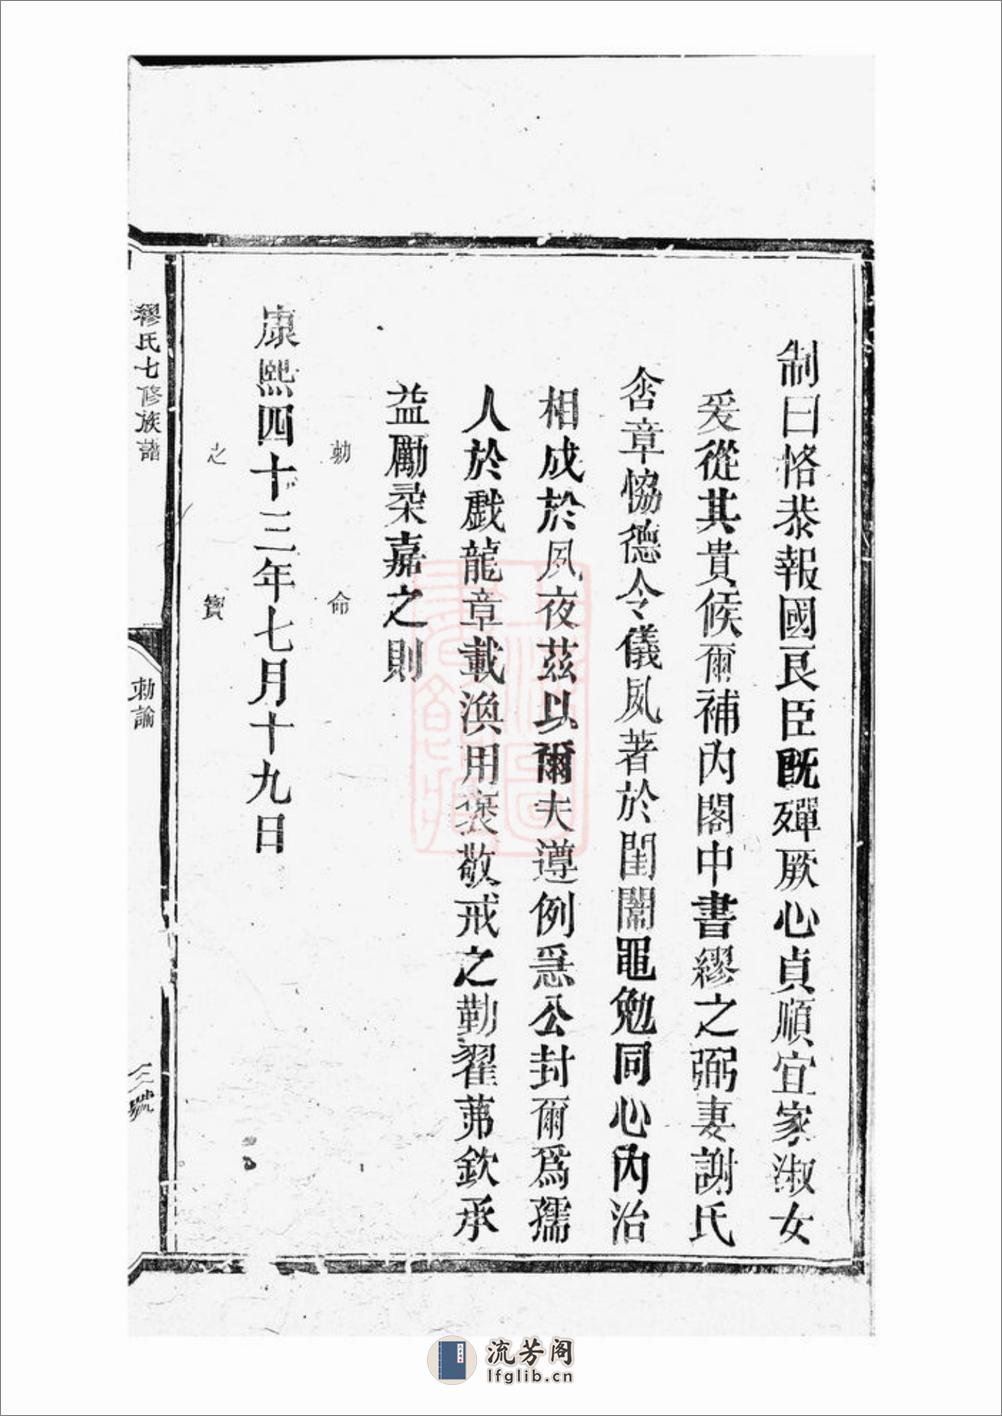 制曰恪恭報國艮臣既殫厥心貞順宜家淑女
爰從其貴候爾補內閣中書繆之弼妻謝氏
含章恊德令儀夙著於閨闥黽勉同心內治
相成於夙夜茲以爾夫遵例急公封爾爲孺
人於戲龍章載渙用褒敬戒之勤翟茀欽承
益勵柔嘉之則
勅命
康熙四十三年七月十九日
之寶
繆氏七修族譜
勅諭
三號
流芳阁
lfglib.cn